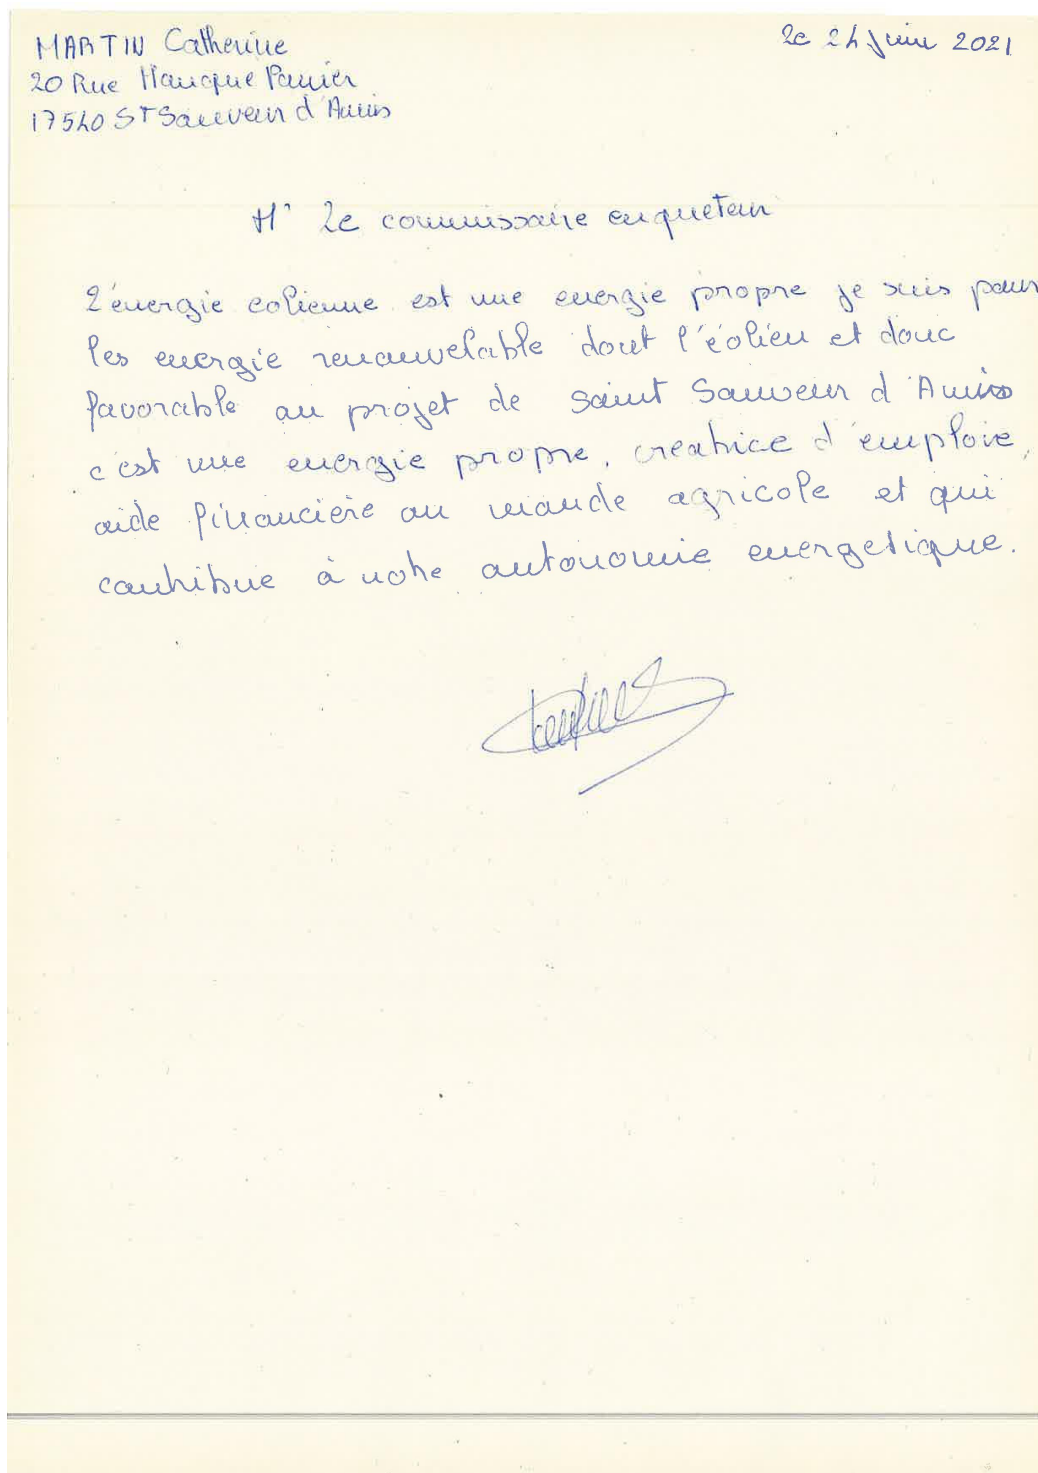 MARTIN Catherine
Le 24 Juin 2021
20 Rue Manque Panier
17540 St Sauveur d'Aunis
Mr Le commissaire enqueteur
L'énergie eolienne est une energie propre je suis pour
les energie renouvelable dont l'éolien et donc
favorable au projet de Saint Sauveur d'Aunis
c'est une energie propre, creatrice d'emploie,
aide financière au monde agricole et qui
contribue à notre autonomie energetique.